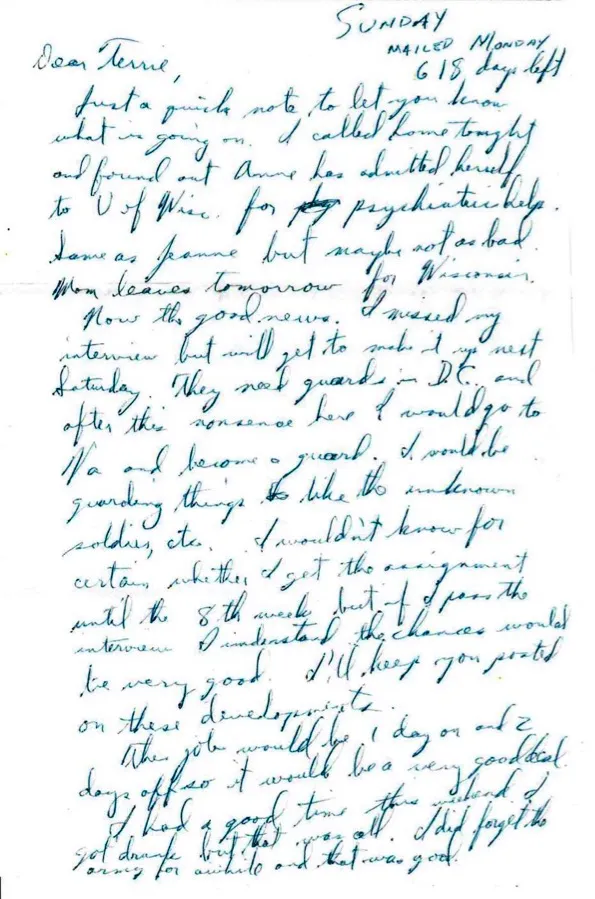 SUNDAY
MAILED MONDAY
618 days left
Dear Terrie,
Just a quick note to let you know
what is going on. I called home tonight
and found out Anne has admitted herself
to U of Wisc. for psychiatric help.
Same as Jeanne but maybe not as bad.
Mom leaves tomorrow for Wisconsin.
Now the good news. I missed my
interview but will get to make it up next
Saturday. They need guards in D.C. and
after this nonsense here I would go to
Va and become a guard. I would be
guarding things like the unknown
soldier, etc. I wouldn't know for
certain whether I get the assignment
until the 8th week but if I pass the
interview I understand the chances would
be very good. I'll keep you posted
on these developments.
The job would be 1 day on and 2
days off so it would be a very good deal.
I had a good time this weekend I
got drunk but that was all. I did forget the
army for awhile and that was good.